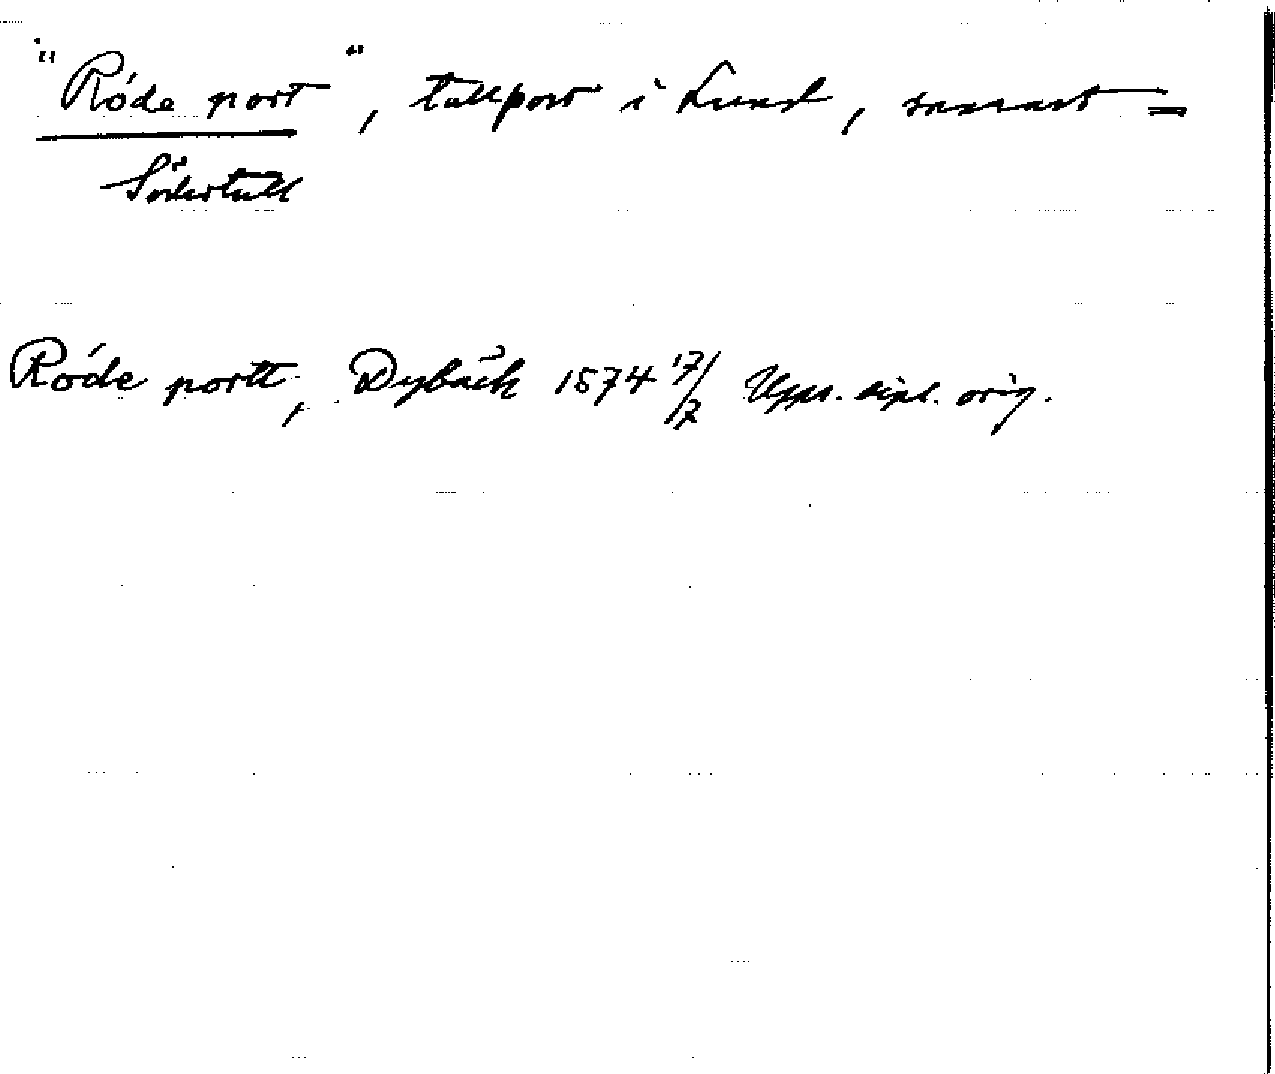 "Róde port", tullport i Lund, senast =
Södertull
Róde portt, Dybäck 1574 17/7 Upps. dipl. orig.